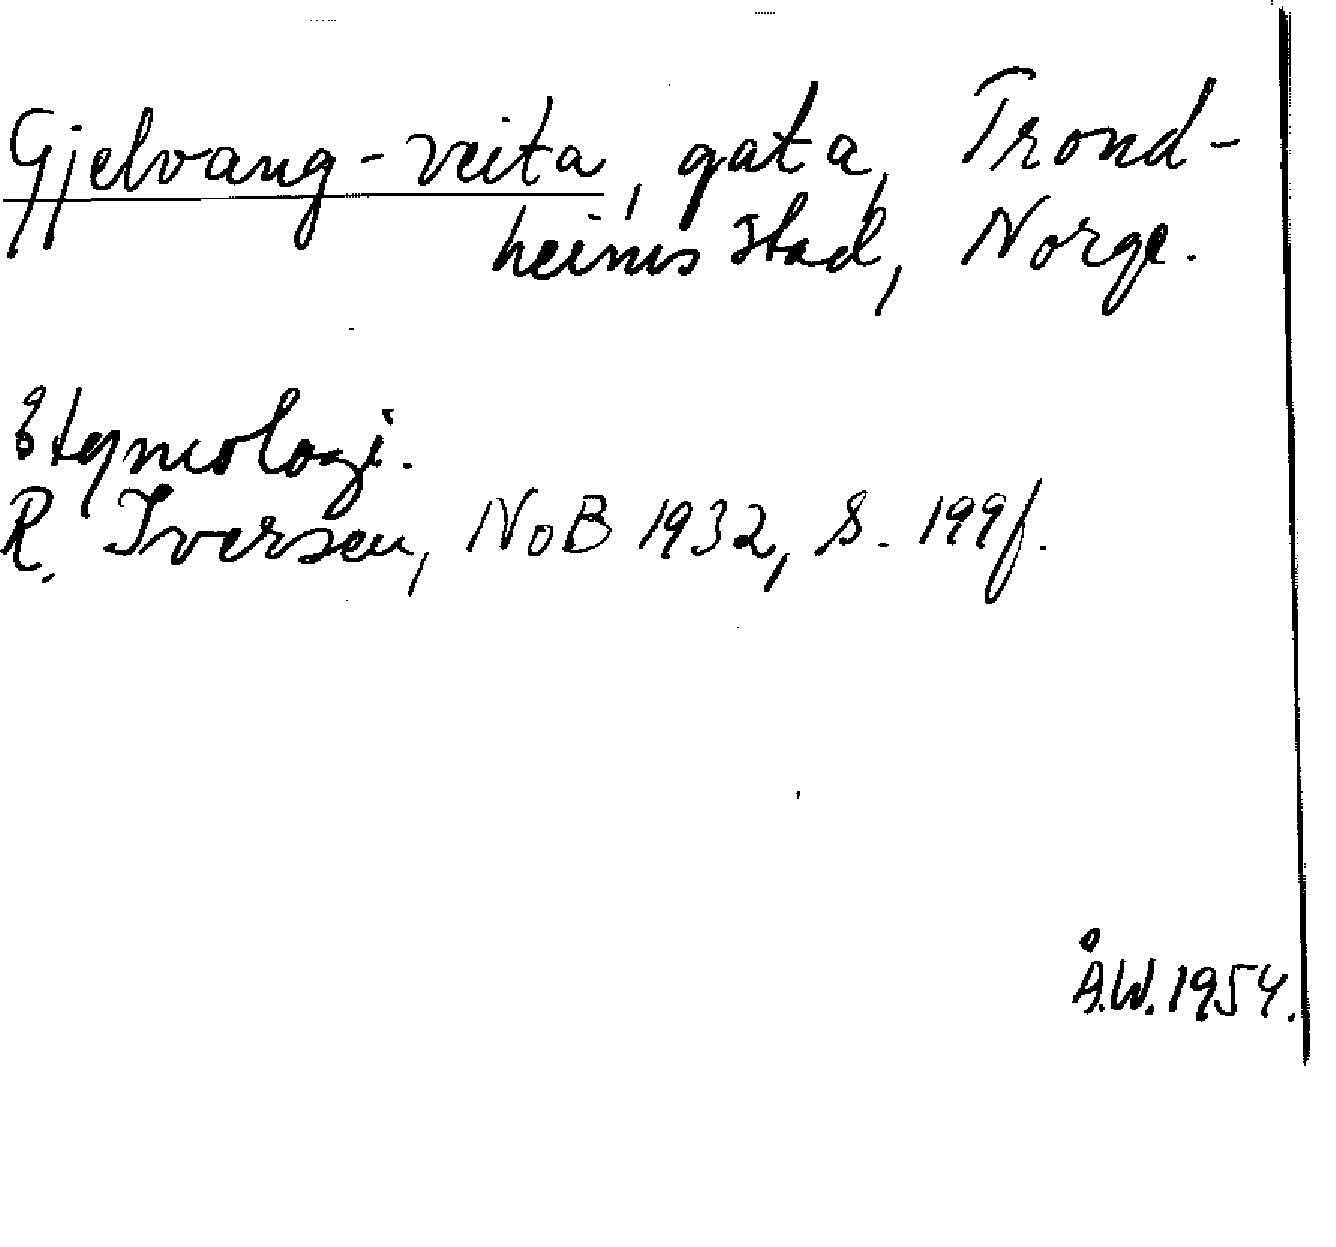 Gjelvang-veita, gata, Trond-
heims stad, Norge.
Etymologi.
R. Iversen, NoB 1932, S. 199f.
Å.W. 1954.